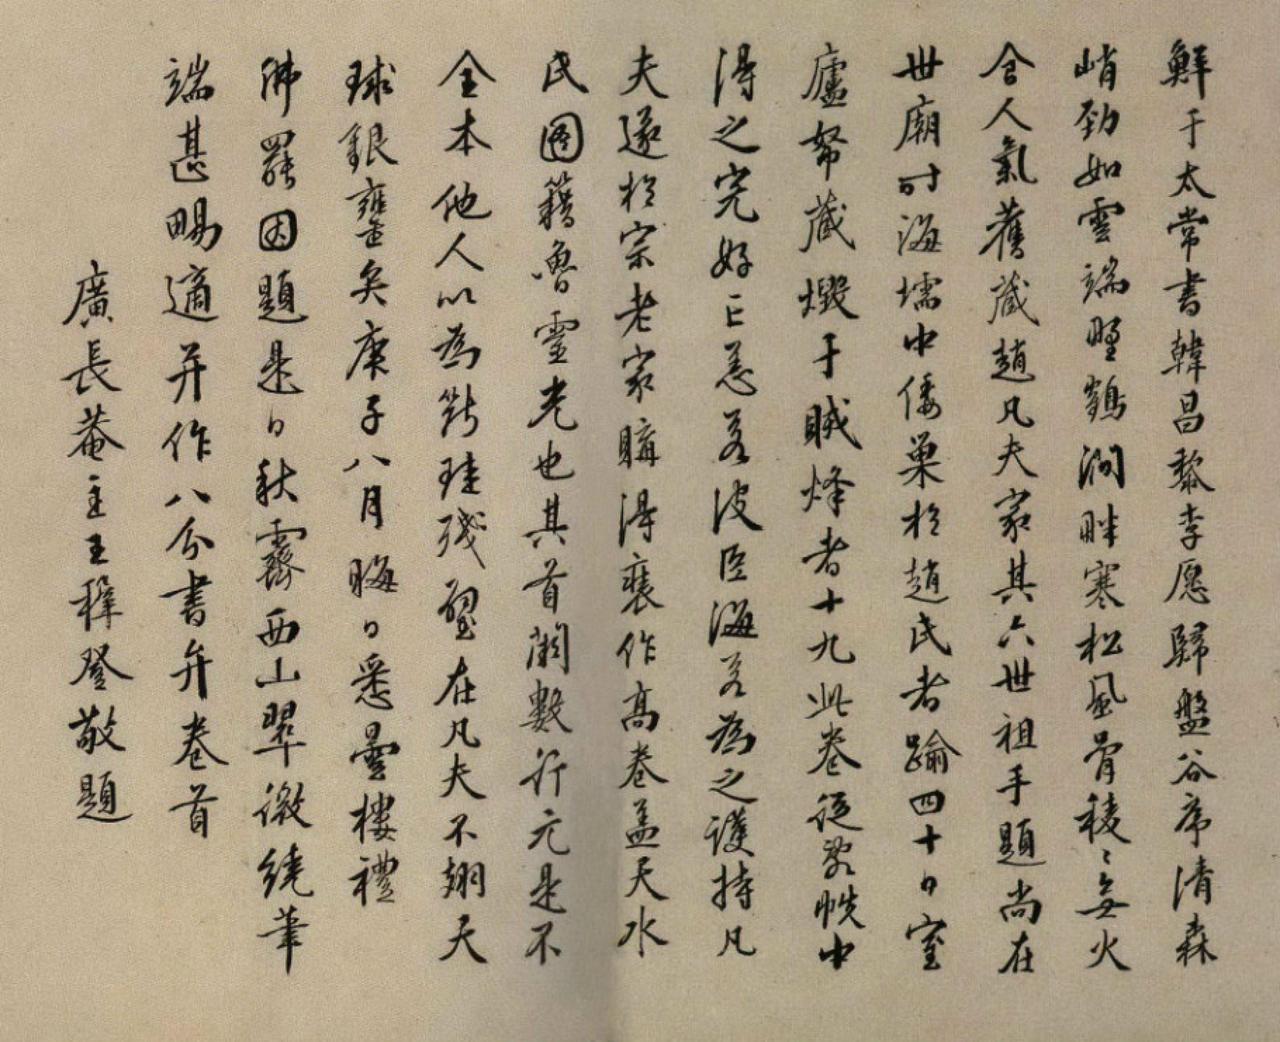 鮮于太常書韓昌黎李愿歸盤谷序清森
峭勁如雲端野鶴澗畔寒松風骨稜〻無火
食人氣舊藏趙凡夫家其六世祖手題尚在
世廟時海壖中倭巢於趙氏者踰四十日室
廬帑藏燬于賊烽者十九此卷從敗帙中
得之完好亡恙若波臣海若為之護持凡
夫遂於宗老家購得裝作高卷蓋天水
氏圖籍魯靈光也其首闕數行元是不
全本他人以為斷珪殘璧在凡夫不翅天
球銀甕矣庚子八月晦日悉曇樓禮
佛罷因題是日秋霽西山翠微繞筆
端甚暢適并作八分書弁卷首
廣長菴主王穉登敬題